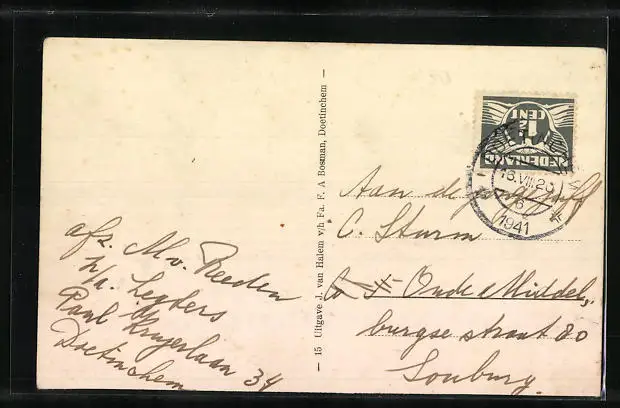 afz. M. v. Reeden
p/a. Leyters
Paul Krugerlaan 34
Doetinchem
— 15 Uitgave J. van Halem v/h Fa. F. A Bosman, Doetinchem —
NEDERLAND
1½
CENT
16.VIII.23
1941
Aan de jongejuff
C. Sturm
Oude Middel,
burgse straat 80
Souburg.